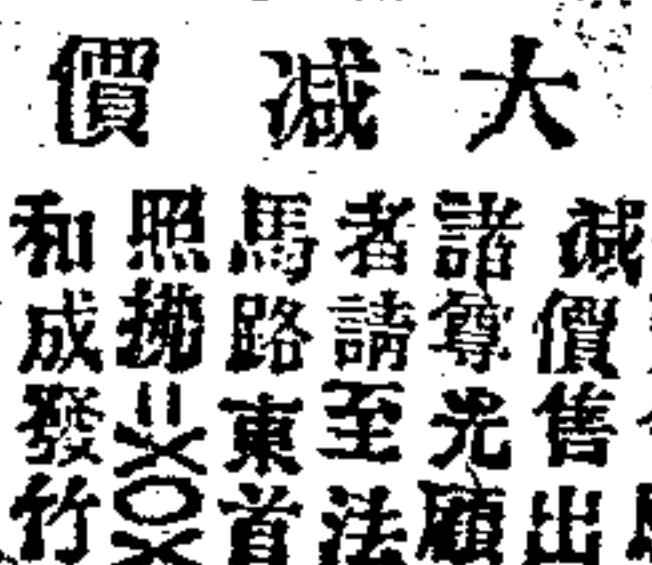 大減價
減價售出
諸尊光顧
者請至法
馬路東首
照拂〢〤〇〤
和成發竹